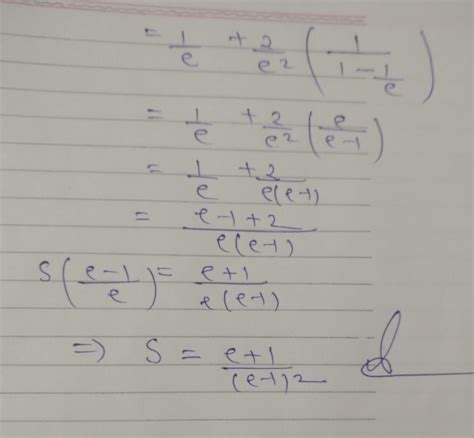 = 1/e + 2/e² (1/(1 - 1/e))
= 1/e + 2/e² (e/(e-1))
= 1/e + 2/(e(e-1))
= (e-1+2)/(e(e-1))
S((e-1)/e) = (e+1)/(e(e-1))
⇒ S = (e+1)/(e-1)²